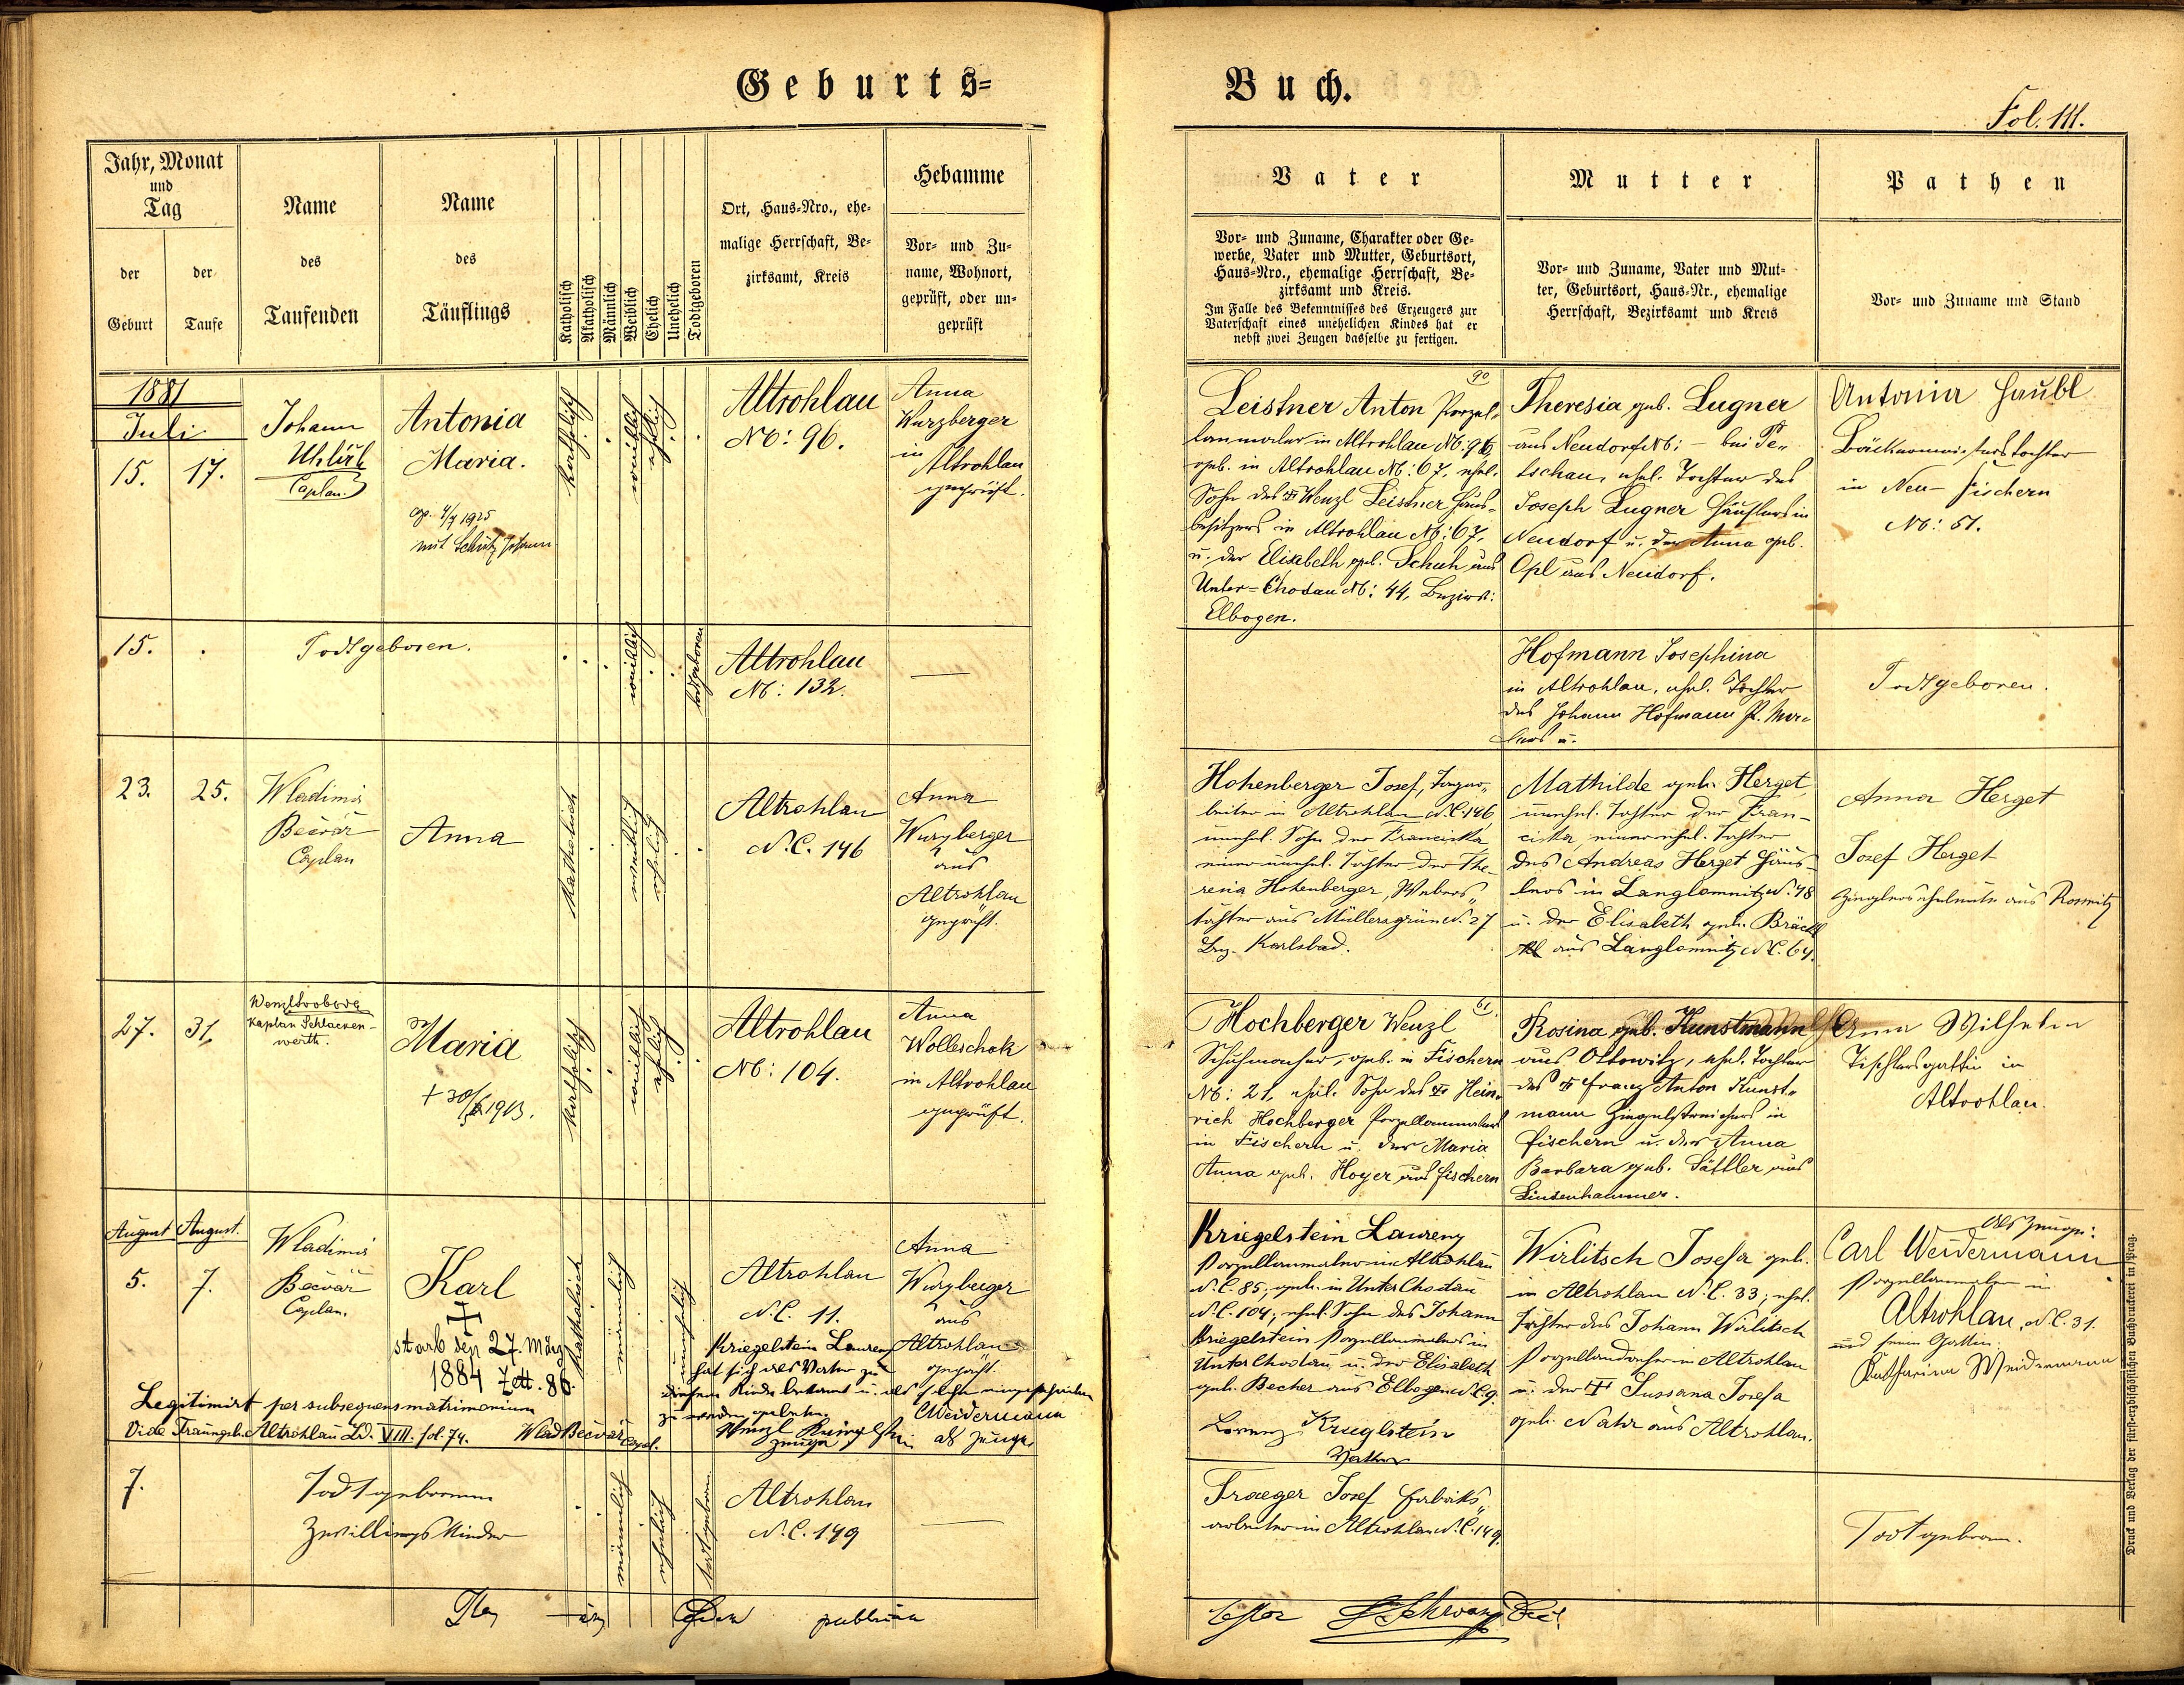 Geburts=
Buch.
Fol. 111.
Jahr, Monat
und
Tag
der
Geburt
der
Taufe
Name
des
Taufenden
Name
des
Täuflings
Katholisch
Akatholisch
Männlich
Weiblich
Ehelich
Unehelich
Todtgeboren
Ort, Haus=Nro., ehe=
malige Herrschaft, Be=
zirksamt, Kreis
Hebamme
Vor= und Zu=
name, Wohnort,
geprüft, oder un=
geprüft
Vater
Vor= und Zuname, Charakter oder Ge=
werbe, Vater und Mutter, Geburtsort,
Haus=Nro., ehemalige Herrschaft, Be=
zirksamt und Kreis.
Im Falle des Bekenntnisses des Erzeugers zur
Vaterschaft eines unehelichen Kindes hat er
nebst zwei Zeugen dasselbe zu fertigen.
Mutter
Vor= und Zuname, Vater und Mut=
ter, Geburtsort, Haus=Nr., ehemalige
Herrschaft, Bezirksamt und Kreis
Pathen
Vor= und Zuname und Stand
1881
Juli
15.
17.
Johann
Uhlik
Caplan.
Antonia
Maria.
cop. 4/7 1925
mit Schütz Johann
katholisch
weiblich
ehlich
Altrohlau
N6: 96.
Anna
Wurzberger
in
Altrohlau
geprüft.
90
Leistner Anton Porzel-
lanmaler in Altrohlau N6: 96,
geb. in Altrohlau N6: 67, ehel.
Sohn des Wenzl Leistner Haus-
besitzers in Altrohlau N6: 67,
u. der Elisabeth geb. Schuh aus
Unter=Chodau N6: 44, Bezirk:
Elbogen.
Theresia geb. Lugner
aus Neudorf N6: — bei Pe-
tschau, ehel. Tochter des
Joseph Lugner Häuslers in
Neudorf u. der Anna geb.
Opl aus Neudorf.
Antonia Haubl
Bäckermeisterstochter
in Neu-Fischern
N6: 51.
15.
Todtgeboren.
weiblich
todtgeboren
Altrohlau
N6: 132.
—
Hofmann Josephina
in Altrohlau, ehel. Tochter
des Johann Hofmann P. Ma-
lers u.
Todtgeboren.
23.
25.
Wladimir
Bečvář
Caplan
Anna
katholisch
weiblich
ehelich
Altrohlau
N.C. 146
Anna
Wurzberger
aus
Altrohlau
geprüft.
Hohenberger Josef, Tagar-
beiter in Altrohlau N.C. 146
unehel. Sohn der Franciska,
einer unehel. Tochter der The-
resia Hohenberger, Webers-
tochter aus Müllersgrün N. 27
Bez. Karlsbad.
Mathilde geb. Herget,
unehel. Tochter der Fran-
ciska, einer ehel. Tochter
des Andreas Herget Häus-
lers in Langlamnitz N. 48
u. der Elisabeth geb. Bräckl
aus Langlamnitz N.C. 64.
Anna Herget
Josef Herget
Zieglerseheleute aus Rosnitz
27.
31.
Kaplan Schlacken-
werth.
Maria
katholisch
weiblich
ehlich
Altrohlau
N6: 104.
Anna
Wolleschak
in Altrohlau
geprüft.
61
Hochberger Wenzl
Schuhmacher, geb. in Fischern
N6: 21, ehel. Sohn des Hein-
rich Hochberger Porzellanmalers
in Fischern u. der Maria
Anna geb. Hoyer aus Fischern
Rosina geb. Kunstmann
aus Ottowitz, ehel. Tochter
des Franz Anton Kunst-
mann Ziegelstreichers in
Fischern u. der Anna
Barbara geb. Sattler aus
Lindenhammer.
Anna Wilhelm
Tischlersgattin in
Altrohlau.
August
August.
5.
7.
Wladimir
Bečvář
Caplan.
Karl
starb den 27. März
1884 Zett. 86.
katholisch
männlich
unehelich
Altrohlau
N.C. 11.
Anna
Wurzberger
aus
Altrohlau
geprüft.
Kriegelstein Laurenz
hat sich als Vater zu
diesem Kinde bekannt u. als solcher eingeschrieben
zu werden gebeten.
Legitimirt per subsequens matrimonium
Vide Trauungsb. Altrohlau Ld. VIII. fol. 74.
Wlad Bečvář Capl.
Wenzl Kriegelstein
Zeuge
C Weidermann
als Zeuge
Kriegelstein Laurenz
Porzellanmaler in Altrohlau
N.C. 85; geb. in Unter Chodau
N.C. 104, ehel. Sohn des Johann
Kriegelstein Porzellanmalers in
Unter Chodau u. der Elisabeth
geb. Becher aus Elbogen N.C. 9.
Lorenz Krieglstein
Vather
Wirlitsch Josefa geb.
in Altrohlau N.C. 33; ehel.
Tochter des Johann Wirlitsch
Porzellandrehers in Altrohlau
u. der Sussana Josefa
geb. Nahr aus Altrohlau.
als Zeuge:
Carl Weidermann
Porzellanmaler in
Altrohlau, N.C. 31.
und seine Gattin:
Katharina Weidermann
7.
Todtgeborene
Zwillingskinder
männlich
ehelich
todtgeboren
Altrohlau
N.C. 149
—
Traeger Josef Fabriks-
arbeiter in Altrohlau N.C. 149.
Todtgeboren.
publicum
Druck und Verlag der fürst=erzbischöflichen Buchdruckerei in Prag.